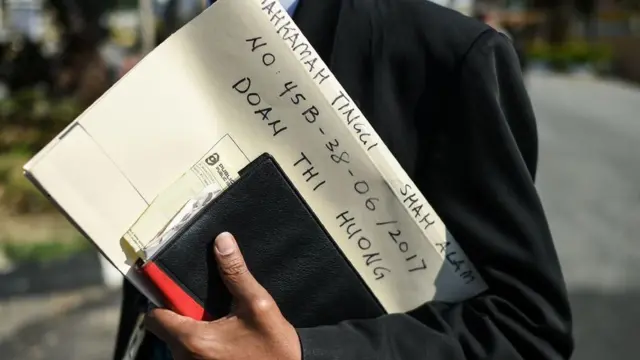 MAHKAMAH TINGGI SHAH ALAM
NO: 45B-38-06/2017
DOAN THI HUONG